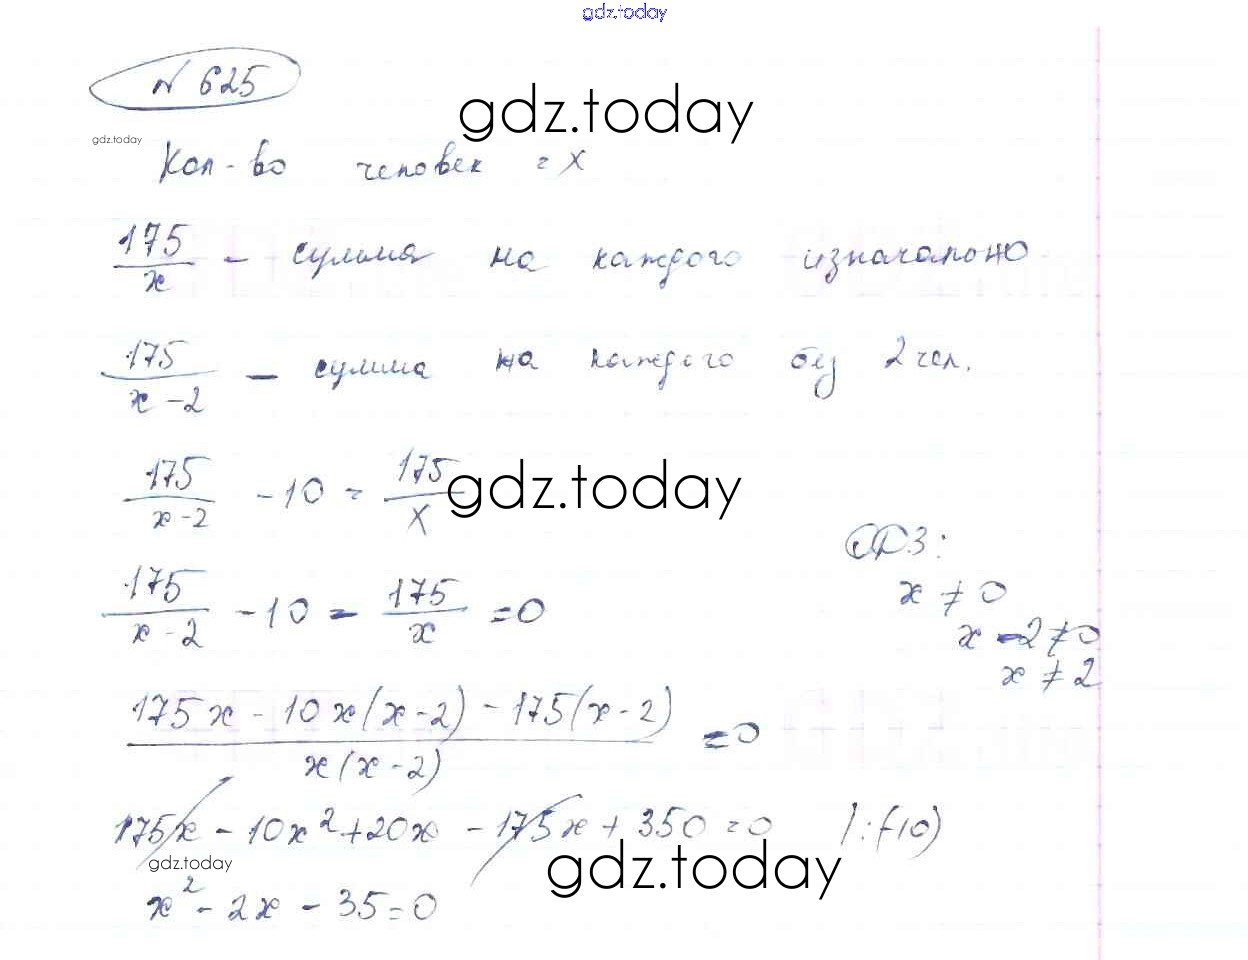 gdz.today
№ 625
gdz.today
gdz.today
Кол-во человек = x
175/x — сумма на каждого изначально
175/(x-2) — сумма на каждого без 2 чел.
175/(x-2) - 10 = 175/x
gdz.today
ОДЗ:
x ≠ 0
x - 2 ≠ 0
x ≠ 2
175/(x-2) - 10 - 175/x = 0
(175x - 10x(x-2) - 175(x-2))/(x(x-2)) = 0
175x - 10x² + 20x - 175x + 350 = 0 |:(-10)
gdz.today
gdz.today
x² - 2x - 35 = 0